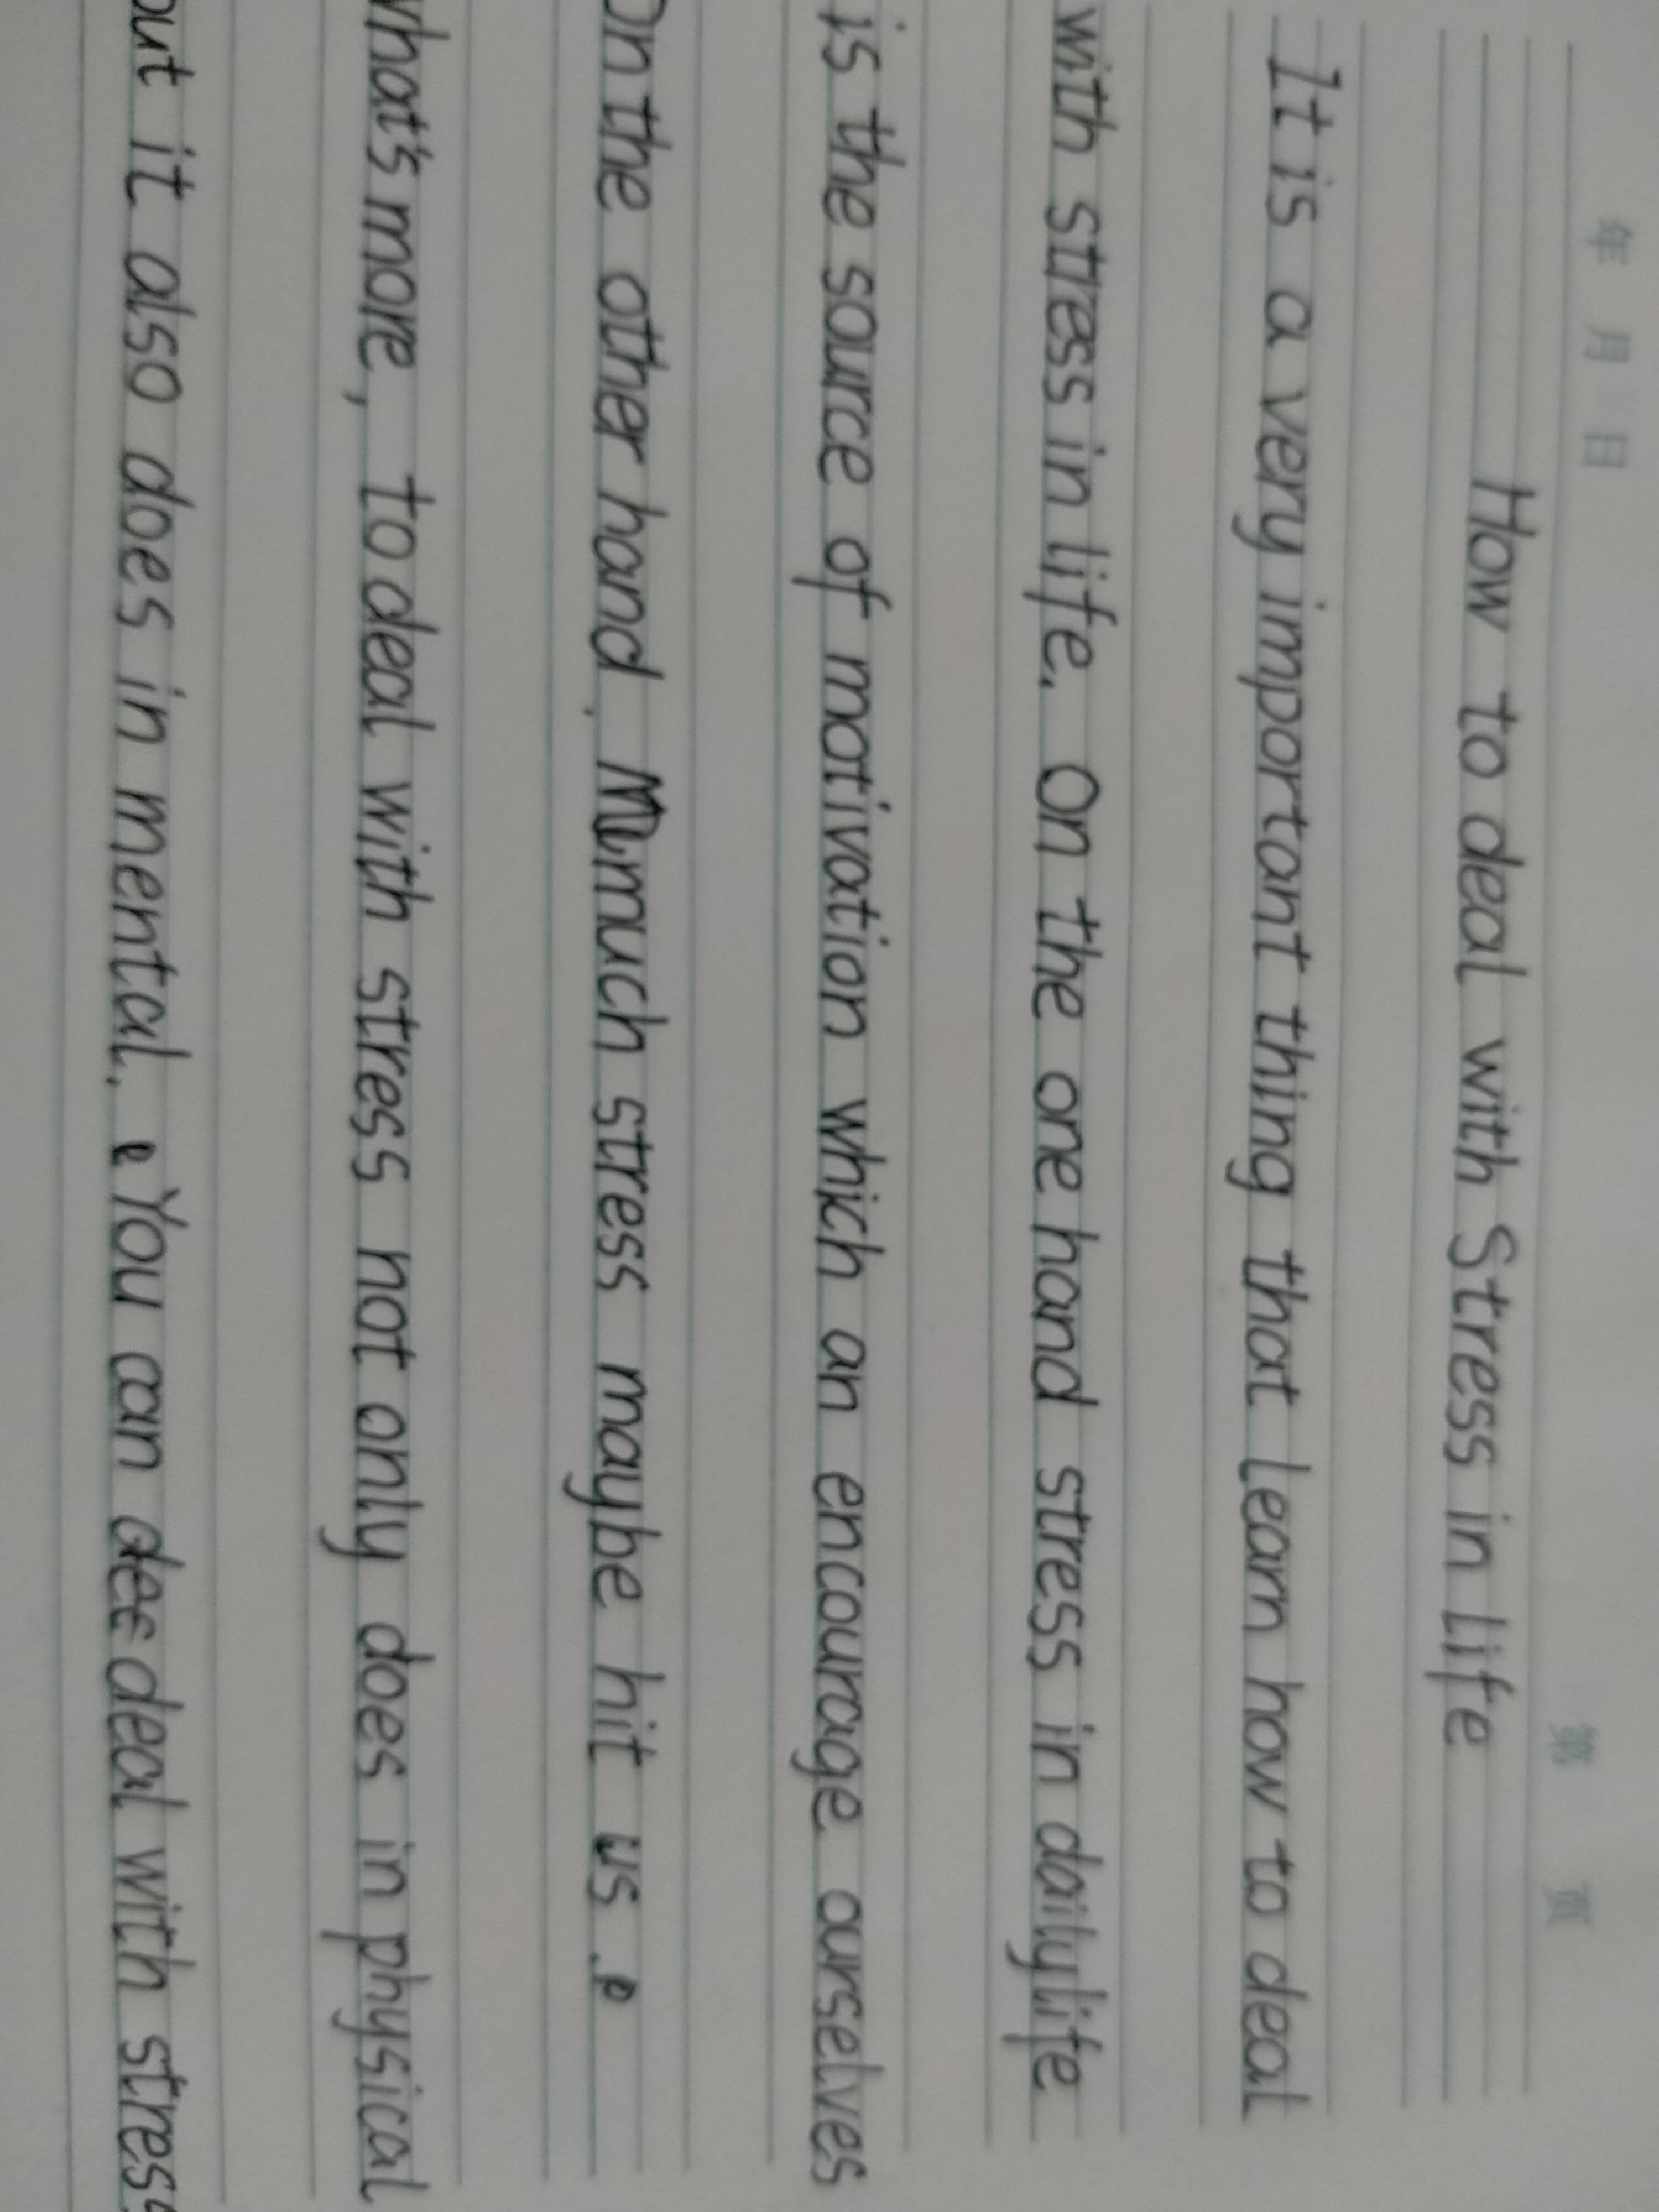 年 月 日 第 页
How to deal with Stress in life
It is a very important thing that learn how to deal
with stress in life. On the one hand stress in dailylife
is the source of motivation which an encourage ourselves
On the other hand, much stress maybe hit us.
what's more, to deal with stress not only does in physical
but it also does in mental. You can deal with stress